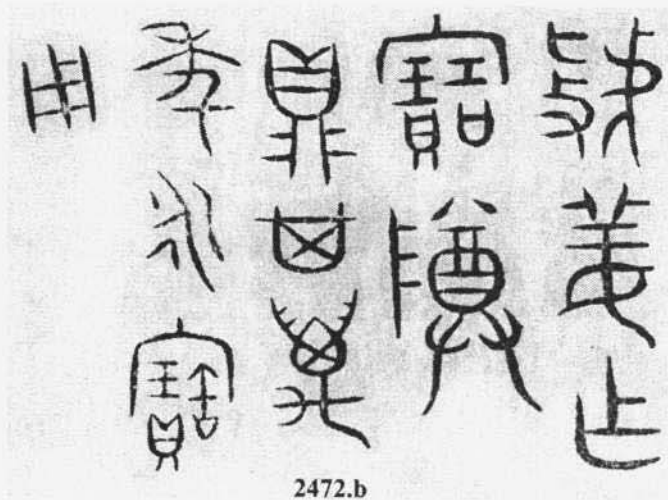 虢姜乍
寶尊
鼎其萬
年永寶
用
2472.b